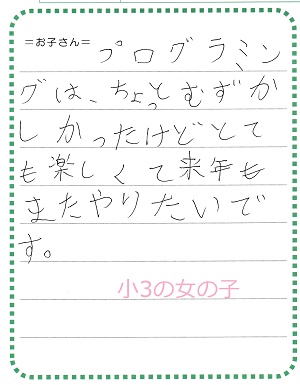 =お子さん= プログラミン
グは、ちょっとむずか
しかったけどとて
も楽しくて来年も
またやりたいで
す。
小3の女の子